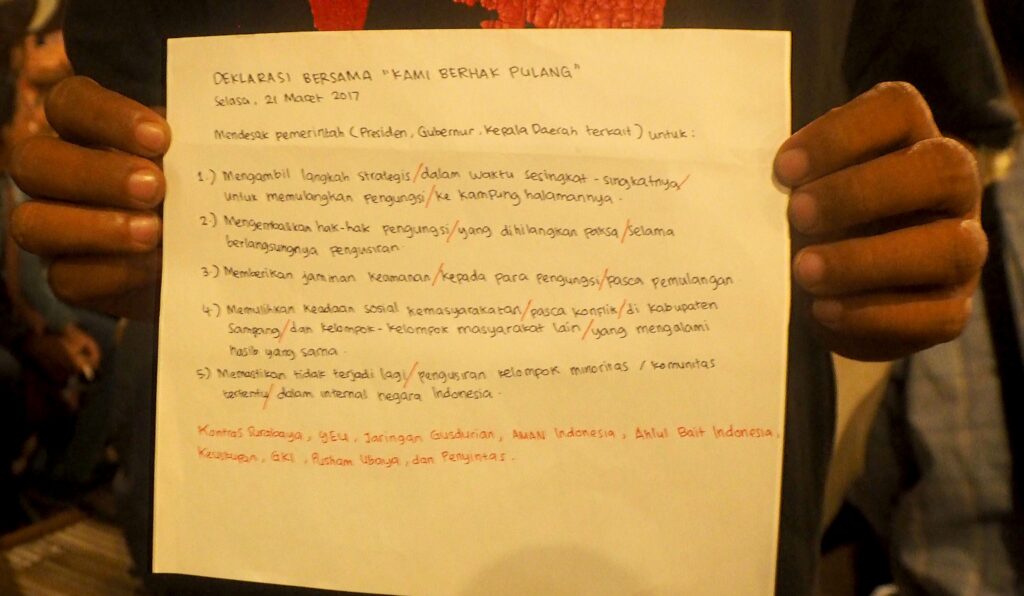 DEKLARASI BERSAMA "KAMI BERHAK PULANG"
Selasa, 21 Maret 2017
Mendesak pemerintah (Presiden, Gubernur, Kepala Daerah terkait) untuk :
1.) Mengambil langkah strategis/dalam waktu sesingkat-singkatnya/
untuk memulangkan pengungsi/ke kampung halamannya.
2.) Mengembalikan hak-hak pengungsi/yang dihilangkan paksa/selama
berlangsungnya pengusiran.
3.) Memberikan jaminan keamanan/kepada para pengungsi/pasca pemulangan.
4.) Memulihkan keadaan sosial kemasyarakatan/pasca konflik/di Kabupaten
Sampang/dan kelompok-kelompok masyarakat lain/yang mengalami
nasib yang sama.
5.) Memastikan tidak terjadi lagi/pengusiran kelompok minoritas / komunitas
tertentu/dalam internal negara Indonesia.
Kontras Surabaya, YEU, Jaringan Gusdurian, AMAN Indonesia, Ahlul Bait Indonesia,
Keuskupan, GKI, Pusham Ubaya, dan Penyintas.